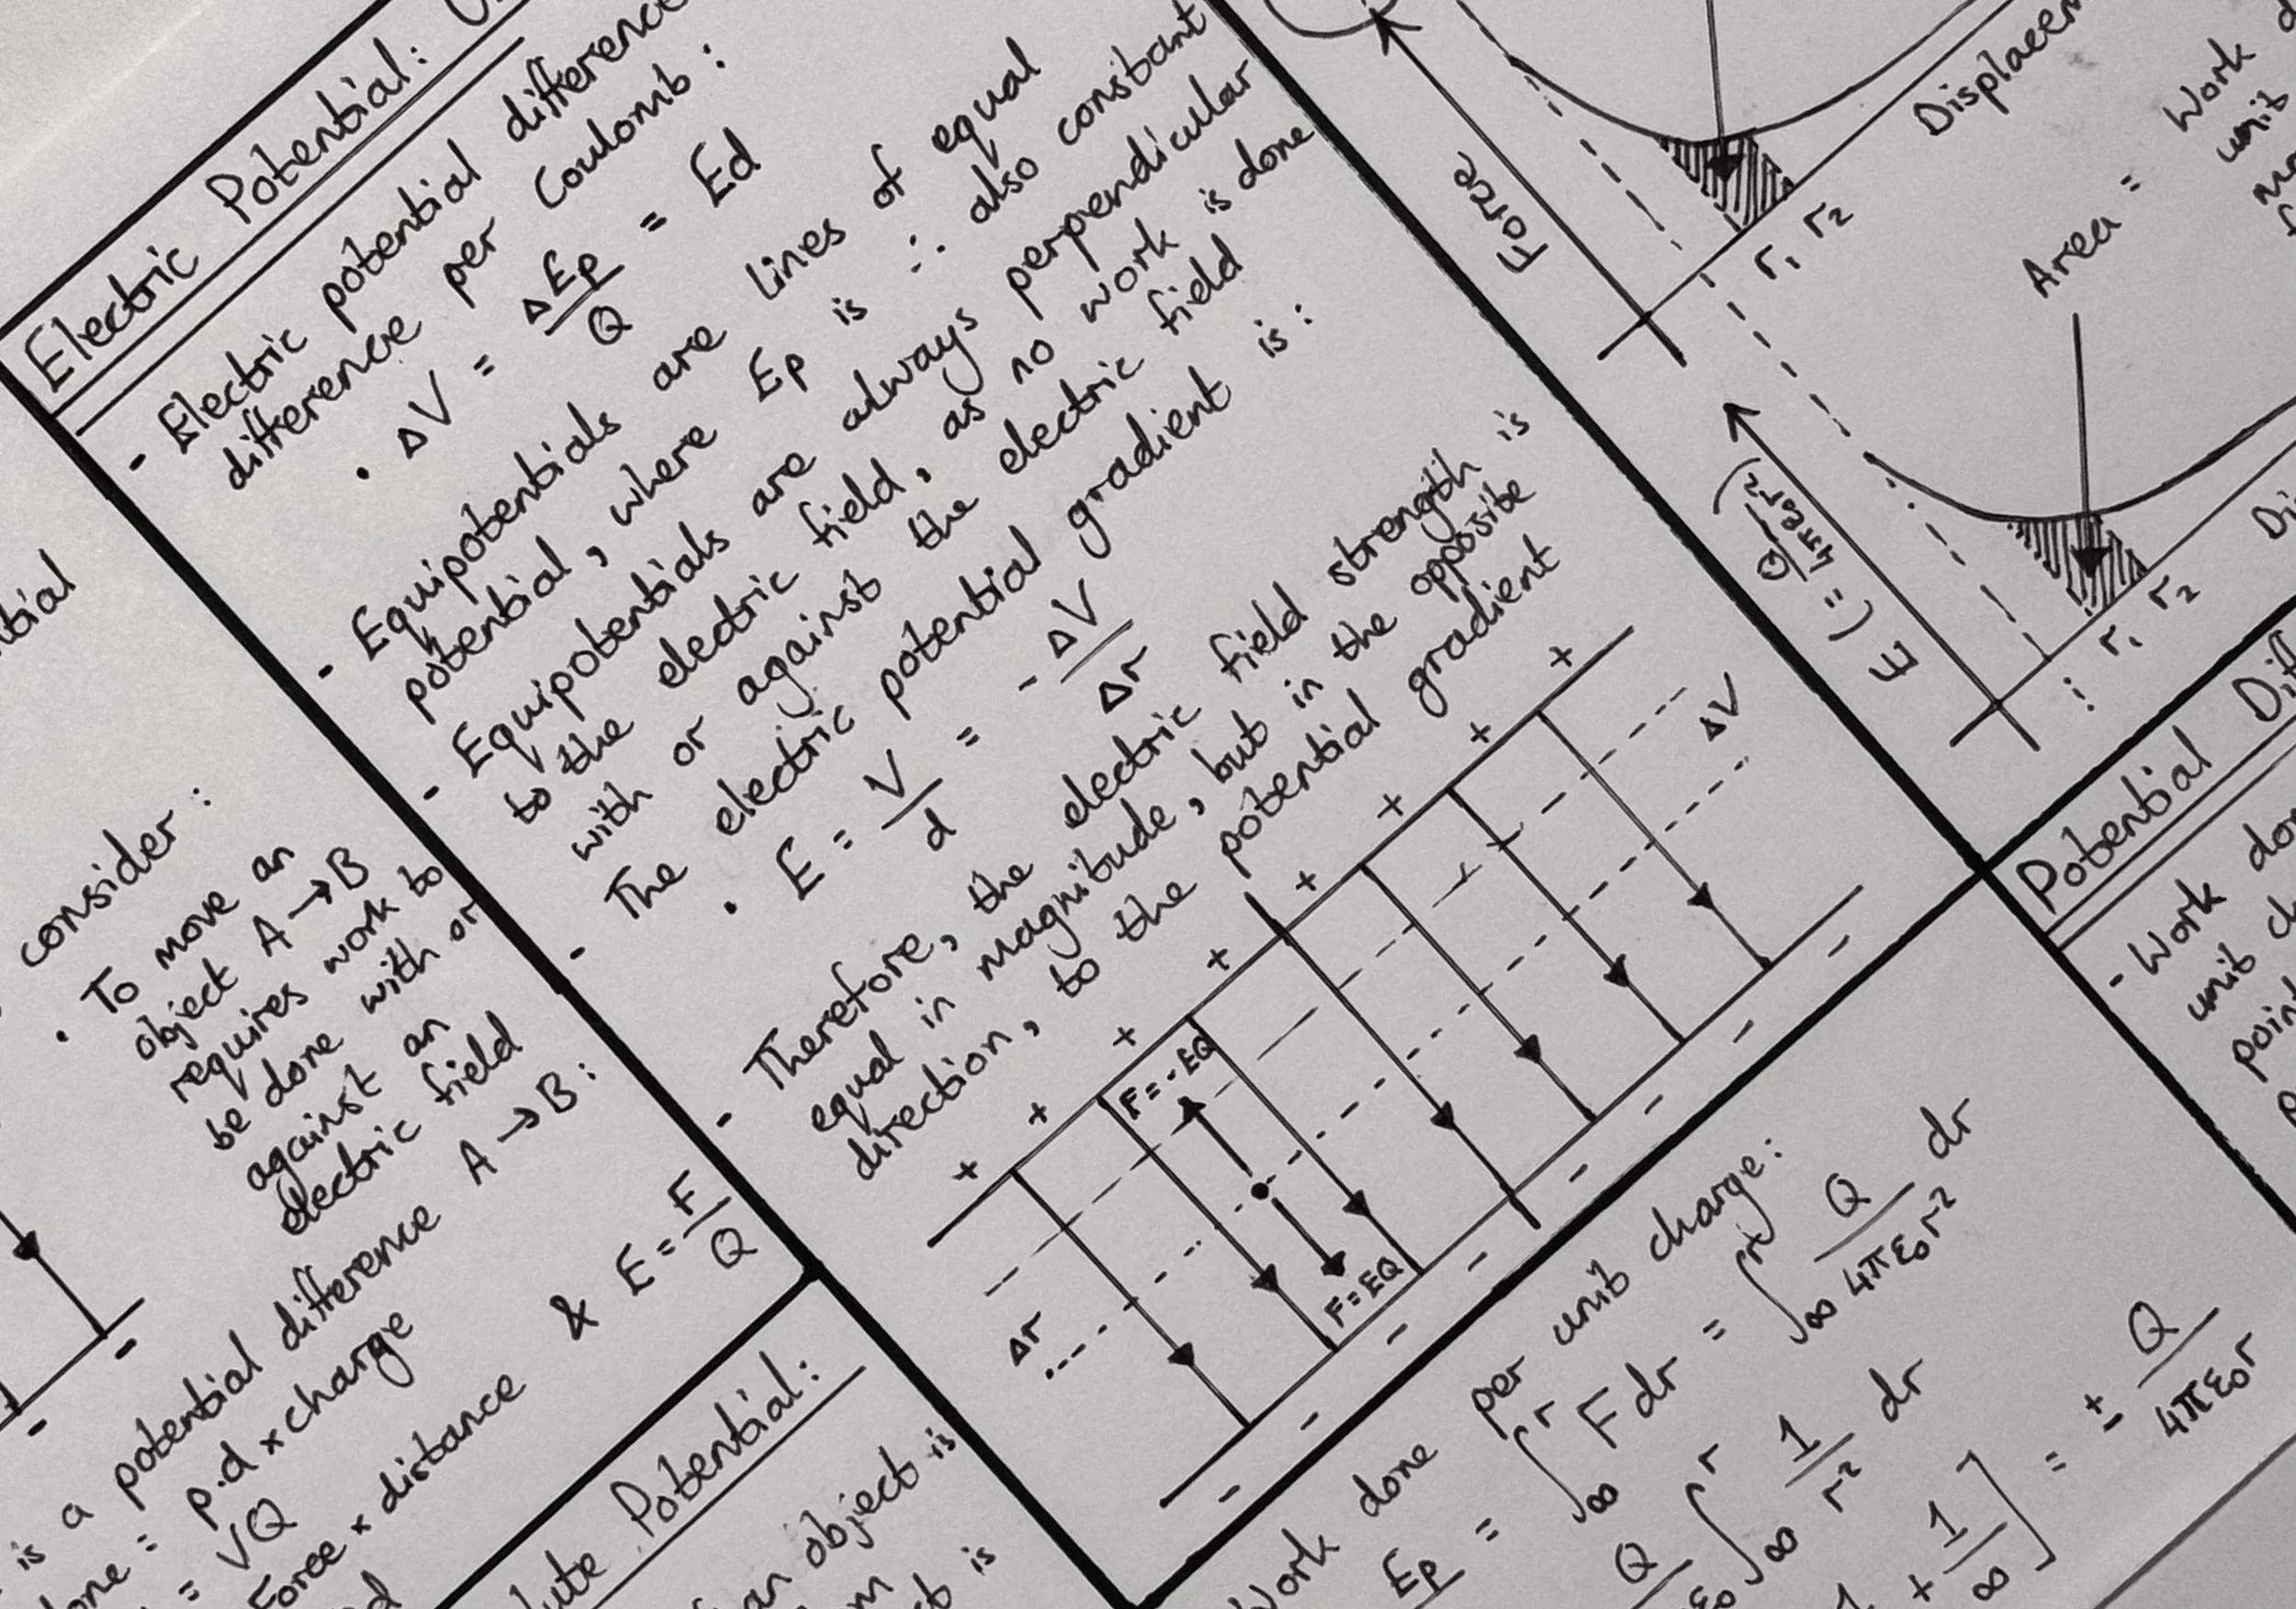 Electric Potential:
- Electric potential difference
difference per Coulomb:
· ΔV = ΔEp/Q = Ed
- Equipotentials are lines of equal
potential, where Ep is ∴ also constant
- Equipotentials are always perpendicular
to the electric field, as no work is done
with or against the electric field
- The electric potential gradient is:
· E = V/d = - ΔV/Δr
- Therefore, the electric field strength is
equal in magnitude, but in the opposite
direction, to the potential gradient
+ + + + + + + +
ΔV
F=-EQ
Δr
F=EQ
- - - - - - - -
consider:
· To move an
object A → B
requires work to
be done with or
against an
electric field
is a potential difference A → B:
= p.d × charge
= VQ
Force × distance & E = F/Q
Potential:
an object is
is
Force
r₁ r₂
Area = Work
unit
E (= Q/4πε₀r²)
r₁ r₂
Potential
- Work
unit
Work done per unit charge:
Ep = ∫∞^r F dr = ∫∞^r Q/4πε₀r² dr
Q ∫∞^r 1/r² dr
+ 1/∞] = ± Q/4πε₀r